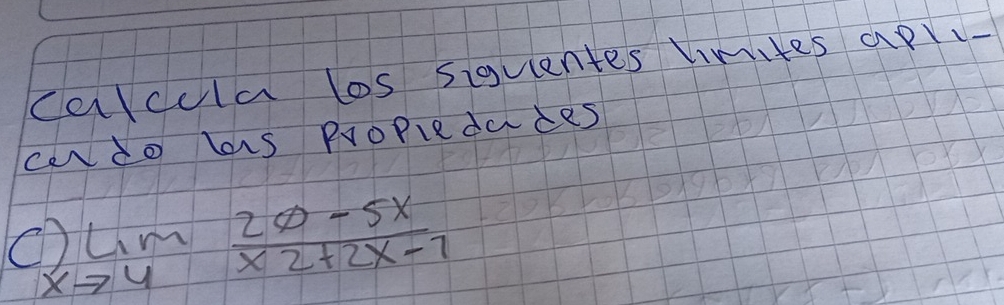 calcula los siguientes limites apli-
cando las Propiedades
C) Lim 20 - 5x / x2 + 2x - 7
x → 4